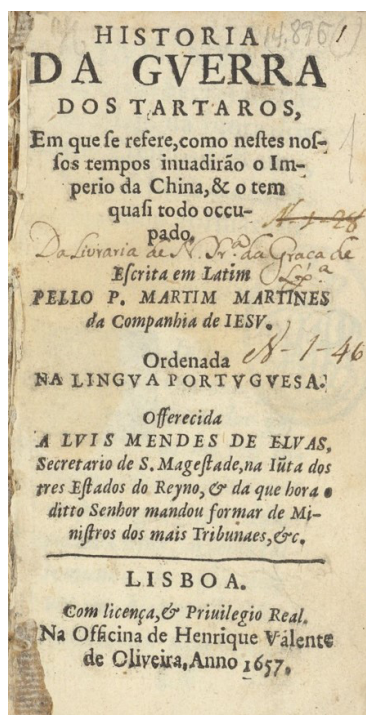 HISTORIA
14.896
DA GVERRA
DOS TARTAROS,
Em que ſe refere, como neſtes noſ-
ſos tempos inuadirão o Im-
perio da China, & o tem
quaſi todo occu-
pado,
N-1-28
Da Livraria de N. Srª. da Graça de
Lxª
Eſcrita em Latim
PELLO P. MARTIM MARTINES
da Companhia de IESV.
Ordenada
N-1-46
NA LINGVA PORTVGVESA.
Offerecida
A LVIS MENDES DE ELVAS,
Secretario de S. Mageſtade, na Iũta dos
tres Eſtados do Reyno, & da que hora o
ditto Senhor mandou formar de Mi-
niſtros dos mais Tribunaes, &c.
LISBOA.
Com licença, & Priuilegio Real.
Na Officina de Henrique Valente
de Oliveira, Anno 1657.